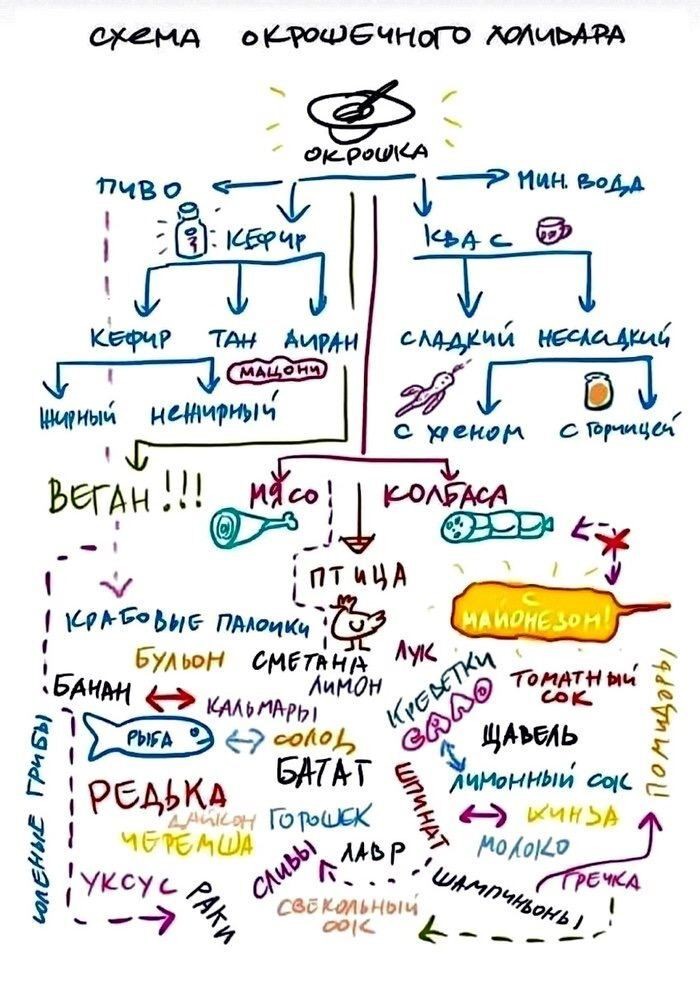 СХЕМА ОКРОШЕЧНОГО ХОЛИВАРА
ОКРОШКА
ПИВО
МИН. ВОДА
КЕФИР
КВАС
КЕФИР ТАН АЙРАН
СЛАДКИЙ НЕСЛАДКИЙ
МАЦОНИ
ЖИРНЫЙ НЕЖИРНЫЙ
С ХРЕНОМ С ГОРЧИЦЕЙ
ВЕГАН!!!
МЯСО
КОЛБАСА
ПТИЦА
С МАЙОНЕЗОМ!
КРАБОВЫЕ ПАЛОЧКИ
БУЛЬОН СМЕТАНА
ЛУК
ЛИМОН
БАНАН
КАЛЬМАРЫ
КРЕВЕТКИ
ТОМАТНЫЙ
СОК
САЛО
РЫБА
СОЛОД
ЩАВЕЛЬ
ПОМИДОРЫ
БАТАТ
ЛИМОННЫЙ СОК
РЕДЬКА
ДАЙКОН
ГОРОШЕК
ШПИНАТ
КИНЗА
ЧЕРЕМША
ЛАВР
МОЛОКО
СОЛЕНЫЕ ГРИБЫ
УКСУС
РАКИ
СЛИВЫ
ШАМПИНЬОНЫ
ГРЕЧКА
СВЕКОЛЬНЫЙ
СОК